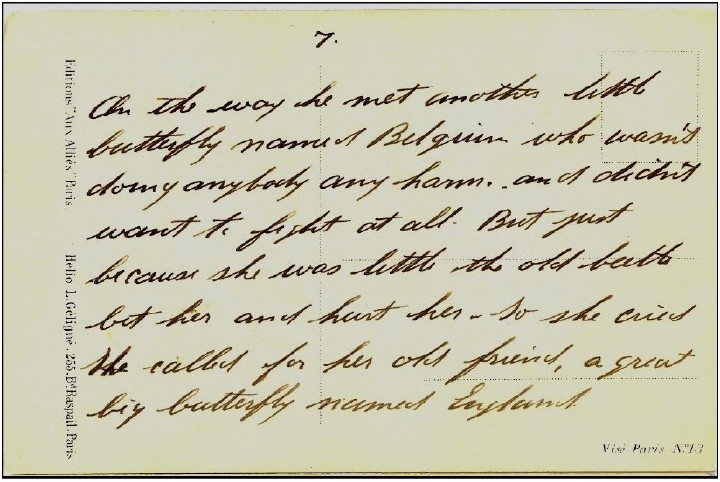 7.
On the way he met another little
butterfly named Belgium who wasn't
doing anybody any harm. and didn't
want to fight at all. But just
because she was little the old beetle
bit her and hurt her. So she cried
She called for her old friend, a great
big butterfly named England
Editions "Aux Alliés" Paris
Hélio. L. Géligné. 255. Bd Raspail. Paris
Visé Paris No 13